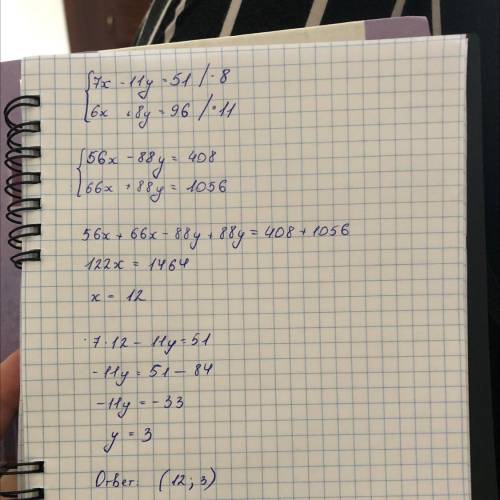 7x - 11y = 51 / · 8
6x + 8y = 96 / · 11
56x - 88y = 408
66x + 88y = 1056
56x + 66x - 88y + 88y = 408 + 1056
122x = 1464
x = 12
7 · 12 - 11y = 51
-11y = 51 - 84
-11y = -33
y = 3
Ответ: (12; 3)